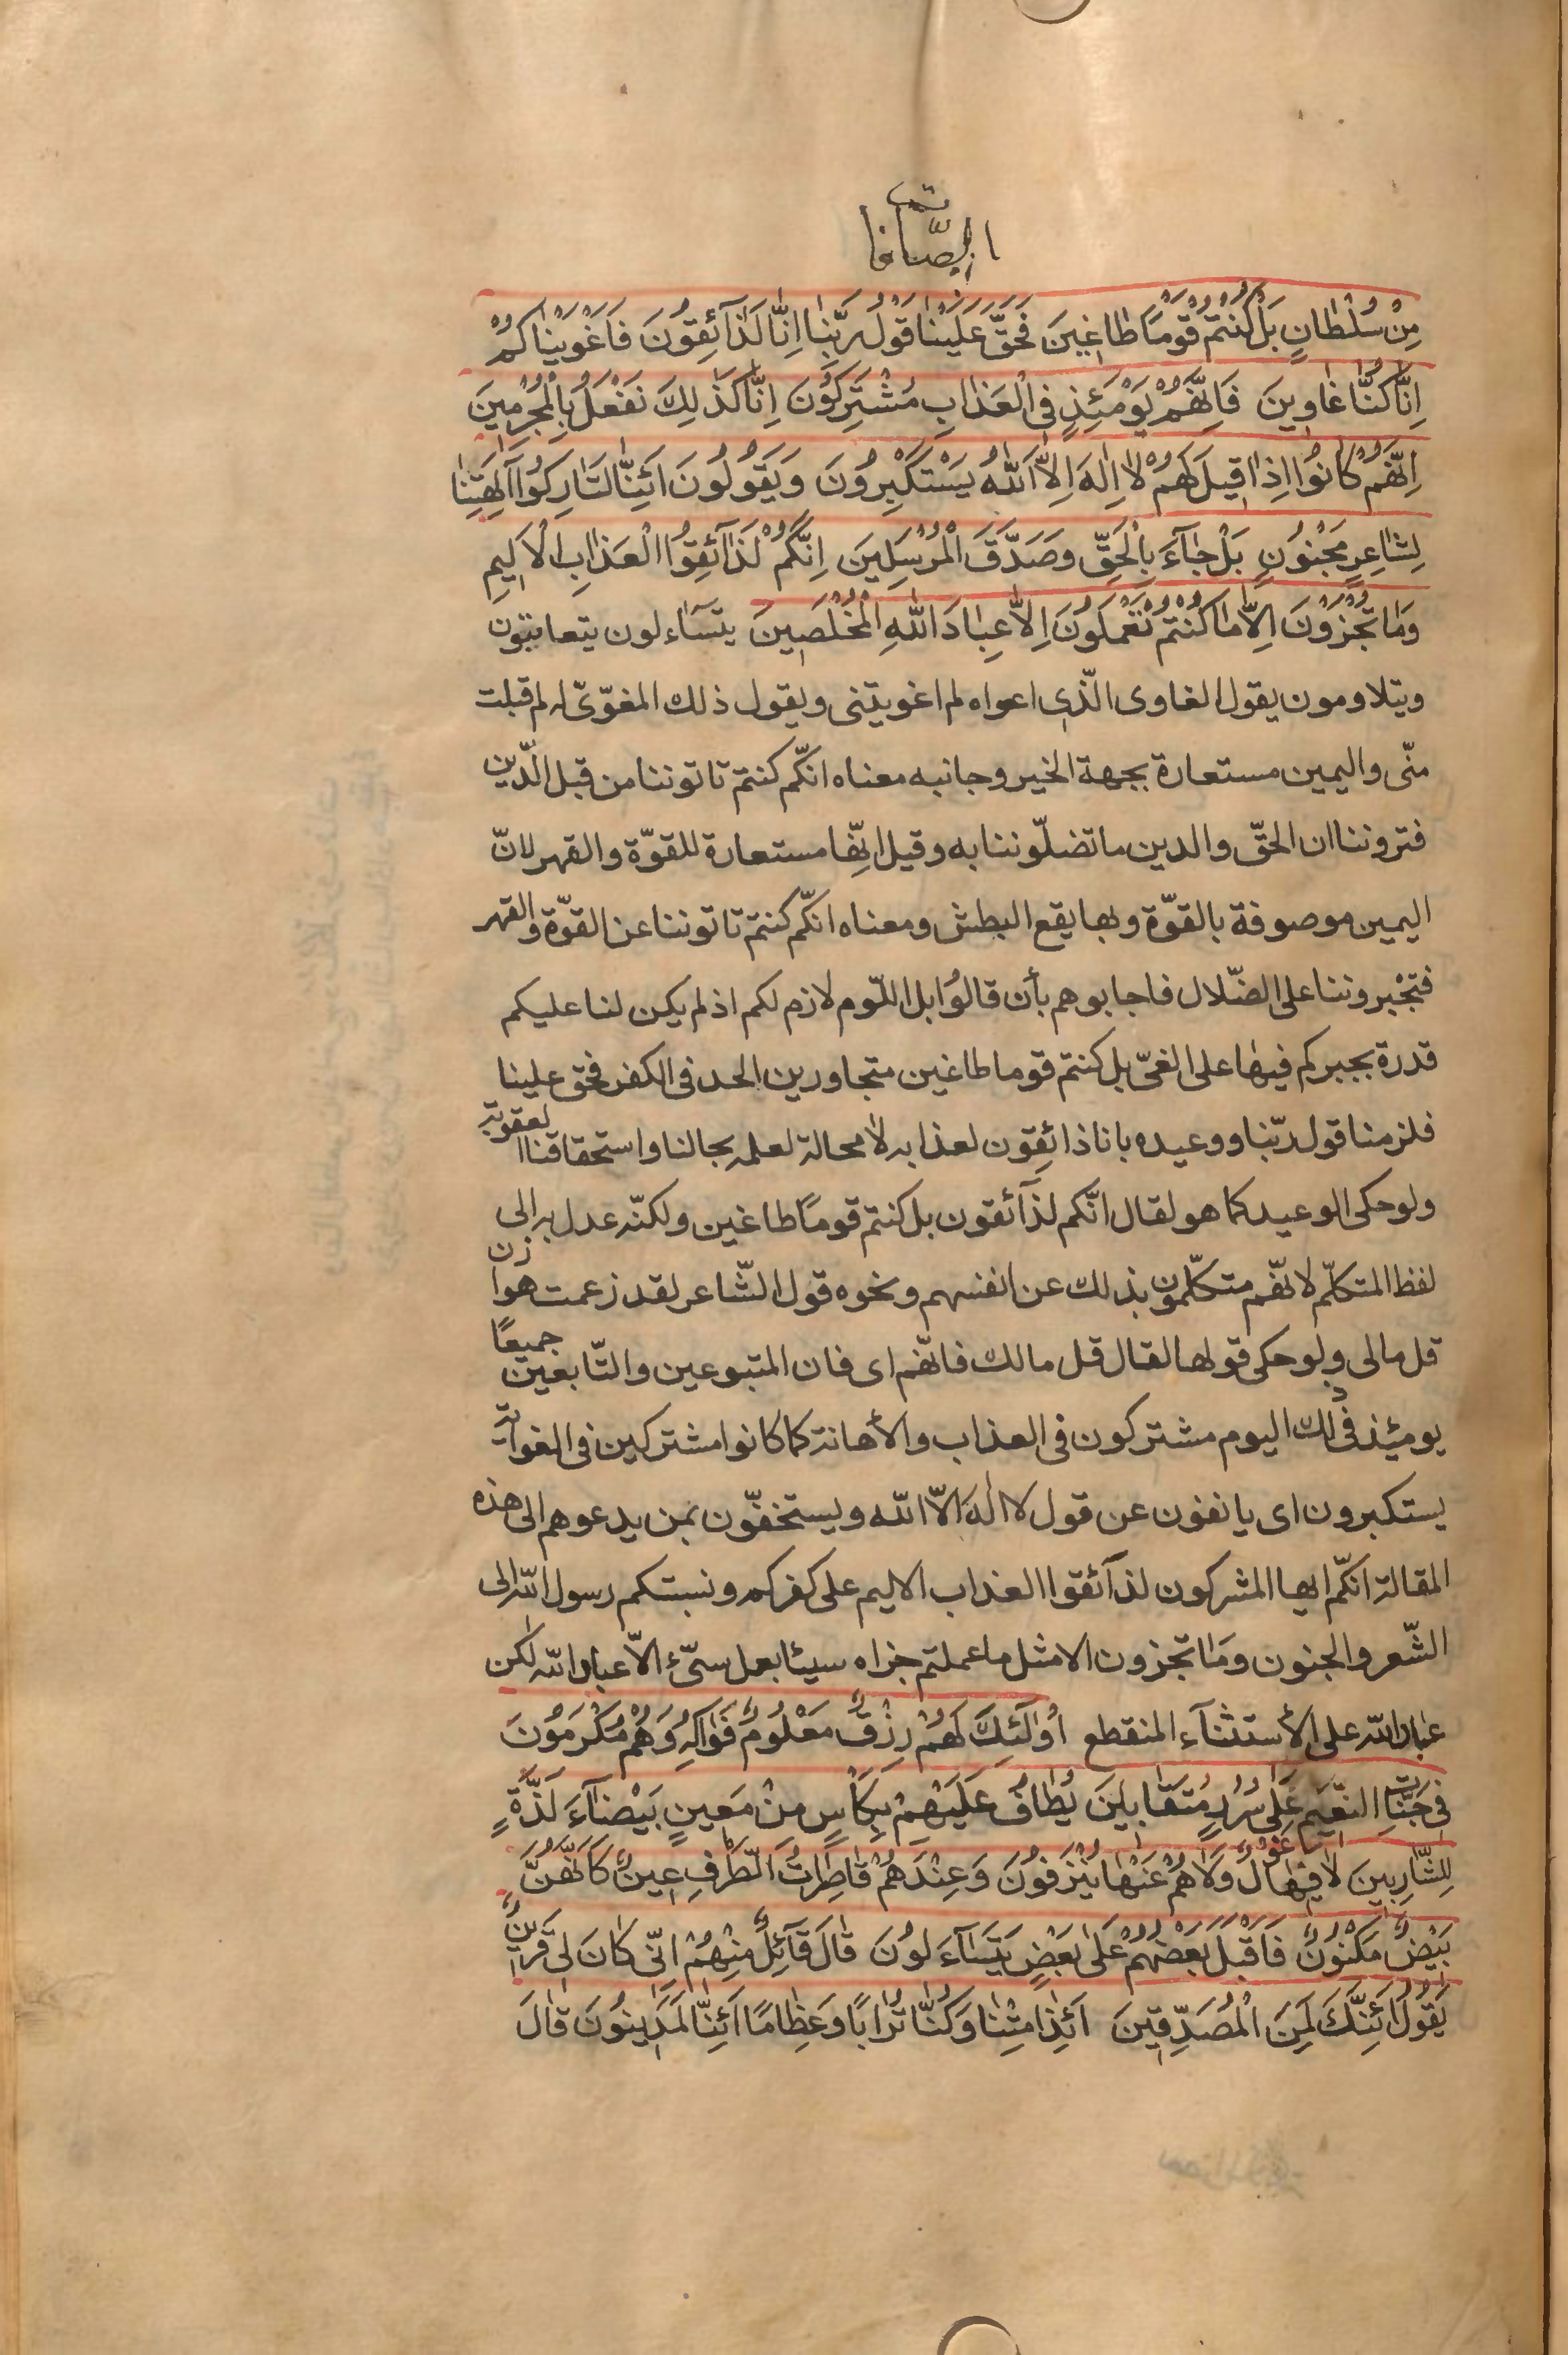 الصّافات
مِنْ سُلْطانٍ بَلْ كُنْتُمْ قَوْمًا طاغينَ فَحَقَّ عَلَيْنا قَوْلُ رَبِّنا اِنّا لَذآئِقُونَ فَاَغْوَيْناكُمْ
اِنّا كُنّا غاوينَ فَاِنَّهُمْ يَوْمَئِذٍ فِى الْعَذابِ مُشْتَرِكُونَ اِنّا كَذٰلِكَ نَفْعَلُ بِالْمُجْرِمينَ
اِنَّهُمْ كانُوا اِذا قيلَ لَهُمْ لا اِلٰهَ اِلاَّ اللّٰهُ يَسْتَكْبِرُونَ وَيَقُولُونَ اَئِنّا لَتارِكُوا آلِهَتِنا
لِشاعِرٍ مَجْنُونٍ بَلْ جآءَ بِالْحَقِّ وَصَدَّقَ الْمُرْسَلينَ اِنَّكُمْ لَذآئِقُوا الْعَذابِ الْاَليمِ
وَما تُجْزَوْنَ اِلاّ ما كُنْتُمْ تَعْمَلُونَ اِلاّ عِبادَ اللّٰهِ الْمُخْلَصينَ يتسآءلون يتعاتبون
ويتلاومون يقول الغاوى الّذى اعواه لم اغويتنى ويقول ذلك المغوّى له لم قبلت
منّى واليمين مستعارة بجهة الخير وجانبه معناه انّكم كنتم تاتوننا من قبل الدّين
فتروننا ان الحقّ والدين ما تضلّوننا به وقيل انّها مستعارة للقوّة والقهر لانّ
اليمين موصوفة بالقوّة وبها يقع البطش ومعناه انكّم كنتم تاتوننا عن القوّة والقهر
فتجْبروننا على الضّلال فاجابوهم بأن قالوُا بل اللّوم لازم لكم اذ لم يكن لنا عليكم
قدرة بجبركم فيها على الغىّ بل كنتم قوما طاغين متجاورين الحد فى الكفر فحق علينا
فلزمنا قول ربّنا ووعيده بانا ذائِقون لعذابه لا محالة لعلمه بحالنا واستحقاقنا العقوبة
ولو حكى الوعيد كما هو لقال انّكم لذآئقون بل كنتم قومًا طاغين ولكنّه عدل به الى
لفظ المتكلّم لانّهم متكلّمون بذلك عن انفسهم ونحوه قول الشّاعر لقد زعمت هوازن
قل مالى ولو حكى قولها لقال قل مالك فانّهم اى فان المتبوعين والتّابعين جميعًا
يومئذ فى ذلك اليوم مشتركون فى العذاب والأهانة كما كانوا مشتركين فى الغواية
يستكبرون اى يانفون عن قول لا الٰه الاّ اللّه ويستخفّون بمن يدعوهم الى هذه
المقالة انكّم ايها المشركون لذآئقوا العذاب الاليم على كفركم ونسبتكم رسول اللّه الى
الشّعر والجنون وما تجزون الا مثل ما عملتم جزاه سيئا بعمل سىّء الاّ عباد اللّه لكن
عباد اللّه على الأستثنآء المنقطع اُولٰئِكَ لَهُمْ رِزْقٌ مَعْلُومٌ فَواكِهُ وَهُمْ مُكْرَمُونَ
فى جَنّاتِ النَّعيمِ عَلٰى سُرُرٍ مُتَقابِلينَ يُطافُ عَلَيْهِمْ بِكَأْسٍ مِنْ مَعينٍ بَيْضآءَ لَذَّةٍ
لِلشّارِبينَ لا فيها غَوْلٌ وَلا هُمْ عَنْها يُنْزَفُونَ وَعِنْدَهُمْ قاصِراتُ الطَّرْفِ عينٌ كَاَنَّهُنَّ
بَيْضٌ مَكْنُونٌ فَاَقْبَلَ بَعْضُهُمْ عَلٰى بَعْضٍ يَتَسآءَلُونَ قالَ قآئِلٌ مِنْهُمْ اِنّى كانَ لى قَرينٌ
يَقُولُ اَئِنَّكَ لَمِنَ الْمُصَدِّقينَ اَئِذا مِتْنا وَكُنّا تُرابًا وَعِظامًا اَئِنّا لَمَدينُونَ قالَ